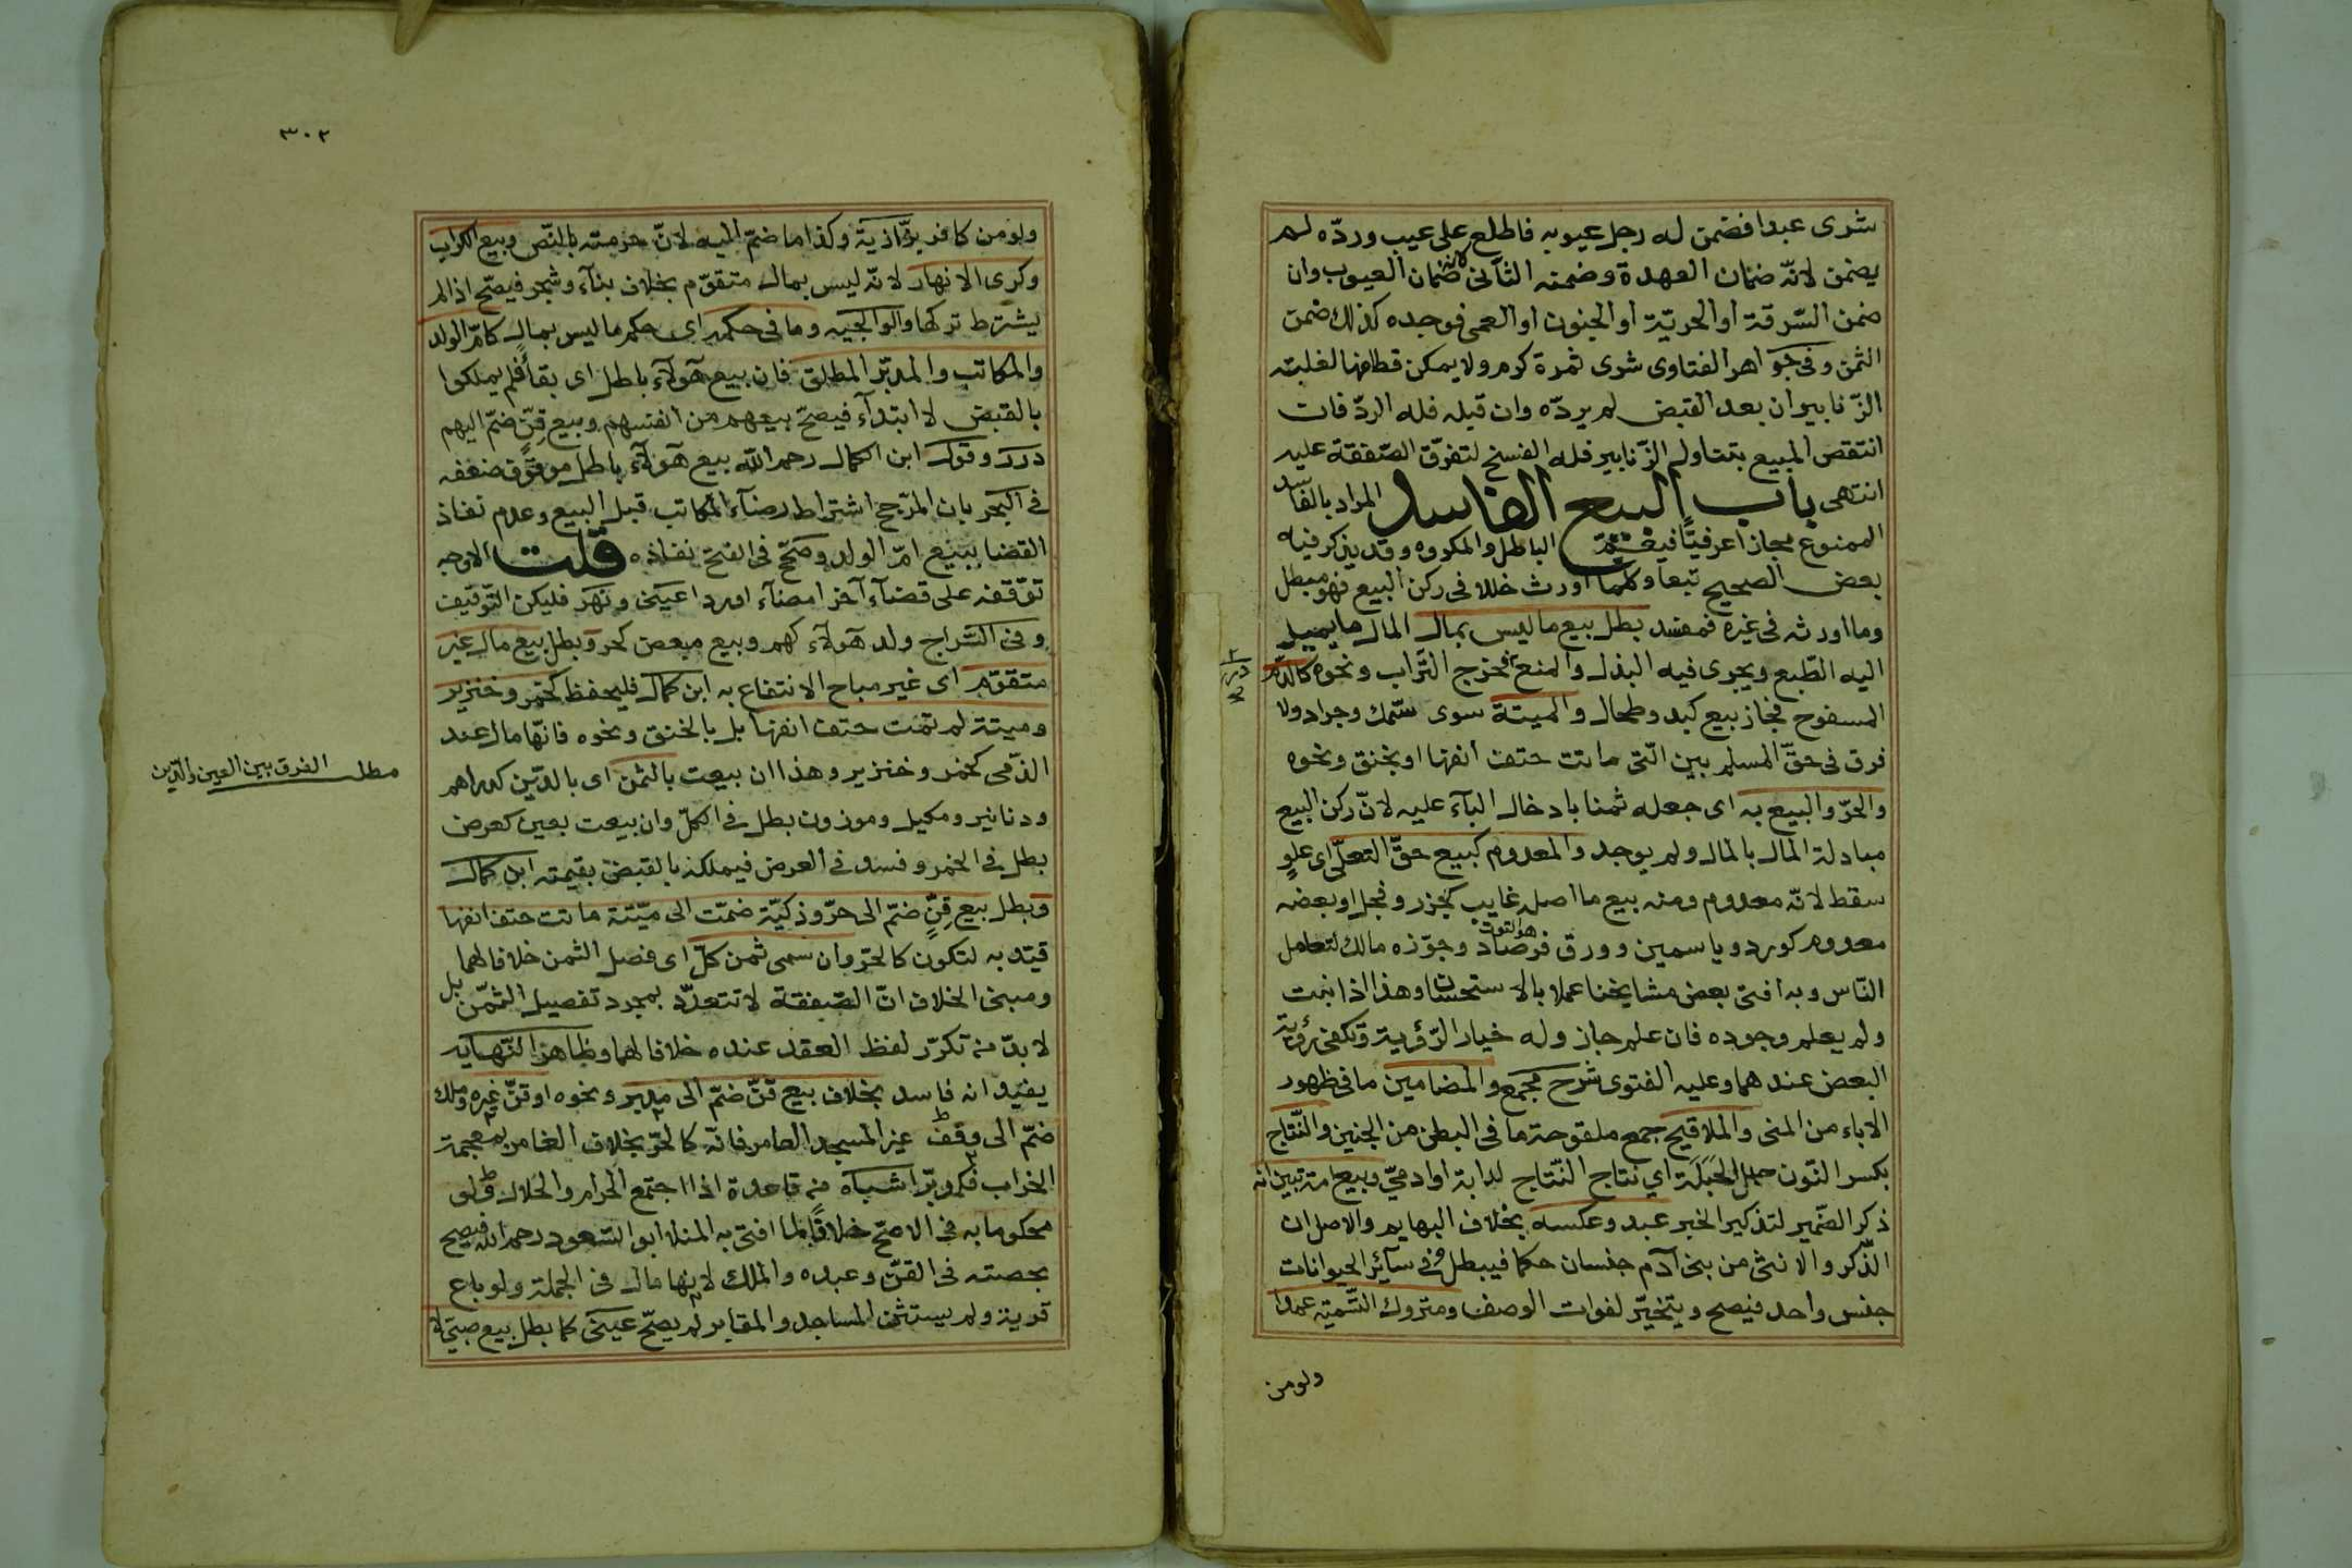 شرى عبدا فضمن له رجل عيوبه فاطلع على عيب ورده لم
يضمن لانه ضمان العهدة وضمنه الثانى لانه ضمان العيوب وان
ضمن السرقة او الحرية او الجنون او العمى فوجده كذلك ضمن
الثمن وفى جواهر الفتاوى شرى ثمرة كرم ولا يمكن قطافها لغلبة
الزنابير ان بعد القبض لم يرده وان قبله فله الرد فان
انتقص المبيع بتناول الزنابير فله الفسخ لتفرق الصفقة عليه
انتهى باب البيع الفاسد المراد بالفاسد
الممنوع مجازا عرفيا فيعم الباطل والمكروه وقد يذكر فيه
بعض الصحيح تبعا وكلما اورث خللا فى ركن البيع فهو مبطل
وما اورثه فى غيره فمفسد بطل بيع ما ليس بمال المال ما يميل
اليه الطبع ويجرى فيه البذل والمنع فخرج التراب ونحوه كالدم
المسفوح فجاز بيع كبد وطحال والميتة سوى سمك وجراد ولا
فرق فى حق المسلم بين التى ماتت حتف انفها او بخنق ونحوه
والحر والبيع به اى جعله ثمنا بادخال الباء عليه لان ركن البيع
مبادلة المال بالمال ولم يوجد والمعدوم كبيع حق التعلى اى علو
سقط لانه معدوم ومنه بيع ما اصله غايب كجزر وفجل او بعضه
معدوم كورد وياسمين وورق فرصاد وجوزه مالك لتعامل
هو التوت
الناس وبه افتى بعض مشايخنا عملا بالاستحسان وهذا اذا نبت
ولم يعلم وجوده فان علم جاز وله خيار الرؤية وتكفى رؤية
البعض عندهما وعليه الفتوى شرح مجمع والمضامين ما فى ظهور
الاباء من المنى والملاقيح جمع ملقوحة ما فى البطن من الجنين والنتاج
بكسر النون حبل الحبلة اي نتاج النتاج لدابة او ادمي وبيع امة تبين انه
ذكر الضمير لتذكير الخبر عبد وعكسه بخلاف البهايم والاصل ان
الذكر والانثى من بنى آدم جنسان حكما فيبطل وفى سآئر الحيوانات
جنس واحد فيصح ويتخير لفوات الوصف ومتروك التسمية عمدا
ولو من
٣٠٢
ولو من كافر بزازية وكذا ما ضم اليه لان حرمته بالنص وبيع الكراب
وكرى الانهار لانه ليس بمال متقوم بخلاف بنآء وشجر فيصح اذا لم
يشترط تركها والوالجيه وما فى حكمه اى حكم ما ليس بمال كام الولد
والمكاتب والمدبر المطلق فان بيع هؤلآء باطل اى بقآ فلم يملكوا
بالقبض لا ابتدآء فيصح بيعهم من انفسهم وبيع قن ضم اليهم
درر وقول ابن الكمال رحمه الله بيع هؤلآء باطل موقوف ضعفه
فى البحر بان المرجح اشتراط رضآء المكاتب قبل البيع وعدم نفاذ
القضا ببيع ام الولد وصحح فى الفتح نفاذه قلت الاوجه
توقفه على قضآء آخر امضآء او ردا عينى ونهر فليكن التوفيق
وفى السراج ولد هؤلآء كهم وبيع مبعض كحر وبطل بيع مال غير
متقوم اى غير مباح الانتفاع به ابن كمال فليحفظ كخمر وخنزير
وميتة لم تمت حتف انفها بل بالخنق ونحوه فانها مال عند
الذمى كخمر وخنزير وهذا ان بيعت بالثمن اى بالدين كدراهم
ودنانير ومكيل وموزون بطل فى الكل وان بيعت بعين كعرض
بطل فى الخمر وفسد فى العرض فيملكه بالقبض بقيمته ابن كمال
وبطل بيع قن ضم الى حر وذكية ضمت الى ميتة ماتت حتف انفها
قيد به لتكون كالحر وان سمى ثمن كل اى فصل الثمن خلافا لهما
ومبنى الخلاف ان الصفقة لا تتعدد بمجرد تفصيل الثمن بل
لا بد من تكرر لفظ العقد عنده خلافا لهما وظاهر النهايه
يفيد انه فاسد بخلاف بيع قن ضم الى مدبر ونحوه او قن غيره وملك
ضم الى وقف غير المسجد العامر فانه كالحر بخلاف الغامر بمعجمة
الخراب فكمدبر اشباه من قاعدة اذا اجتمع الحرام والحلال ولو
محكوما به فى الاصح خلافا لما افتى به المنلا ابو السعود رحمه الله فيصح
بحصته فى القن وعبده والملك لانها مال فى الجملة ولو باع
قرية ولم يستثن المساجد والمقابر لم يصح عينى كما بطل بيع صبى لا
مطلب الفرق بين العين والدين